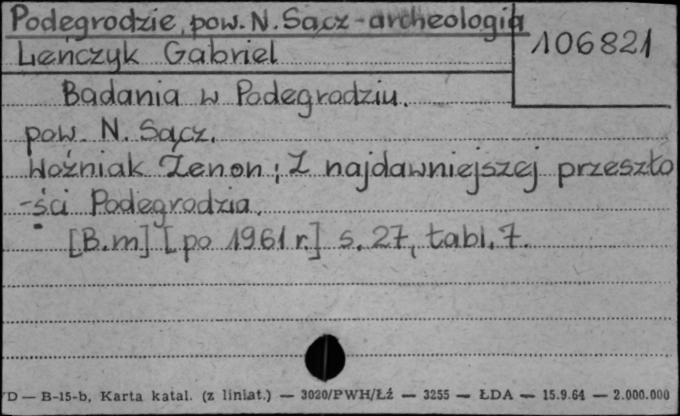 Podegrodzie, pow. N. Sącz - archeologia
106821
Leńczyk Gabriel
Badania w Podegrodziu.
pow. N. Sącz.
Woźniak Zenon; Z najdawniejszej przeszło
-ści Podegrodzia.
[B.m] [po 1961 r.] s. 27, tabl. 7.
D — B-15-b, Karta katal. (z liniat.) — 3020/PWH/Łź — 3255 — ŁDA — 15.9.64 — 2.000.000